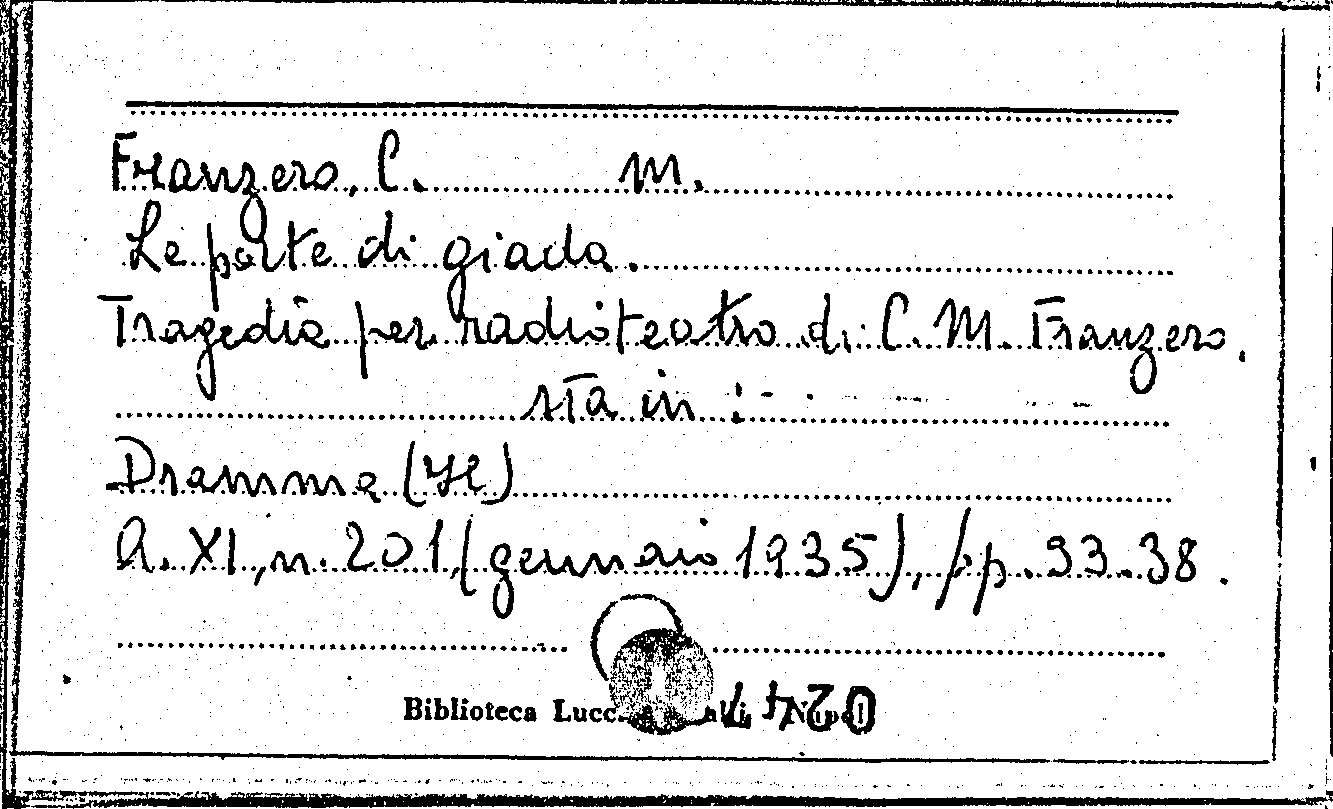 Franzero, C. M.
Le porte di giada.
Tragedia per radioteatro di C. M. Franzero.
sta in :
Dramma (Il)
A. XI, n. 201, (gennaio 1935), pp. 33-38.
Biblioteca